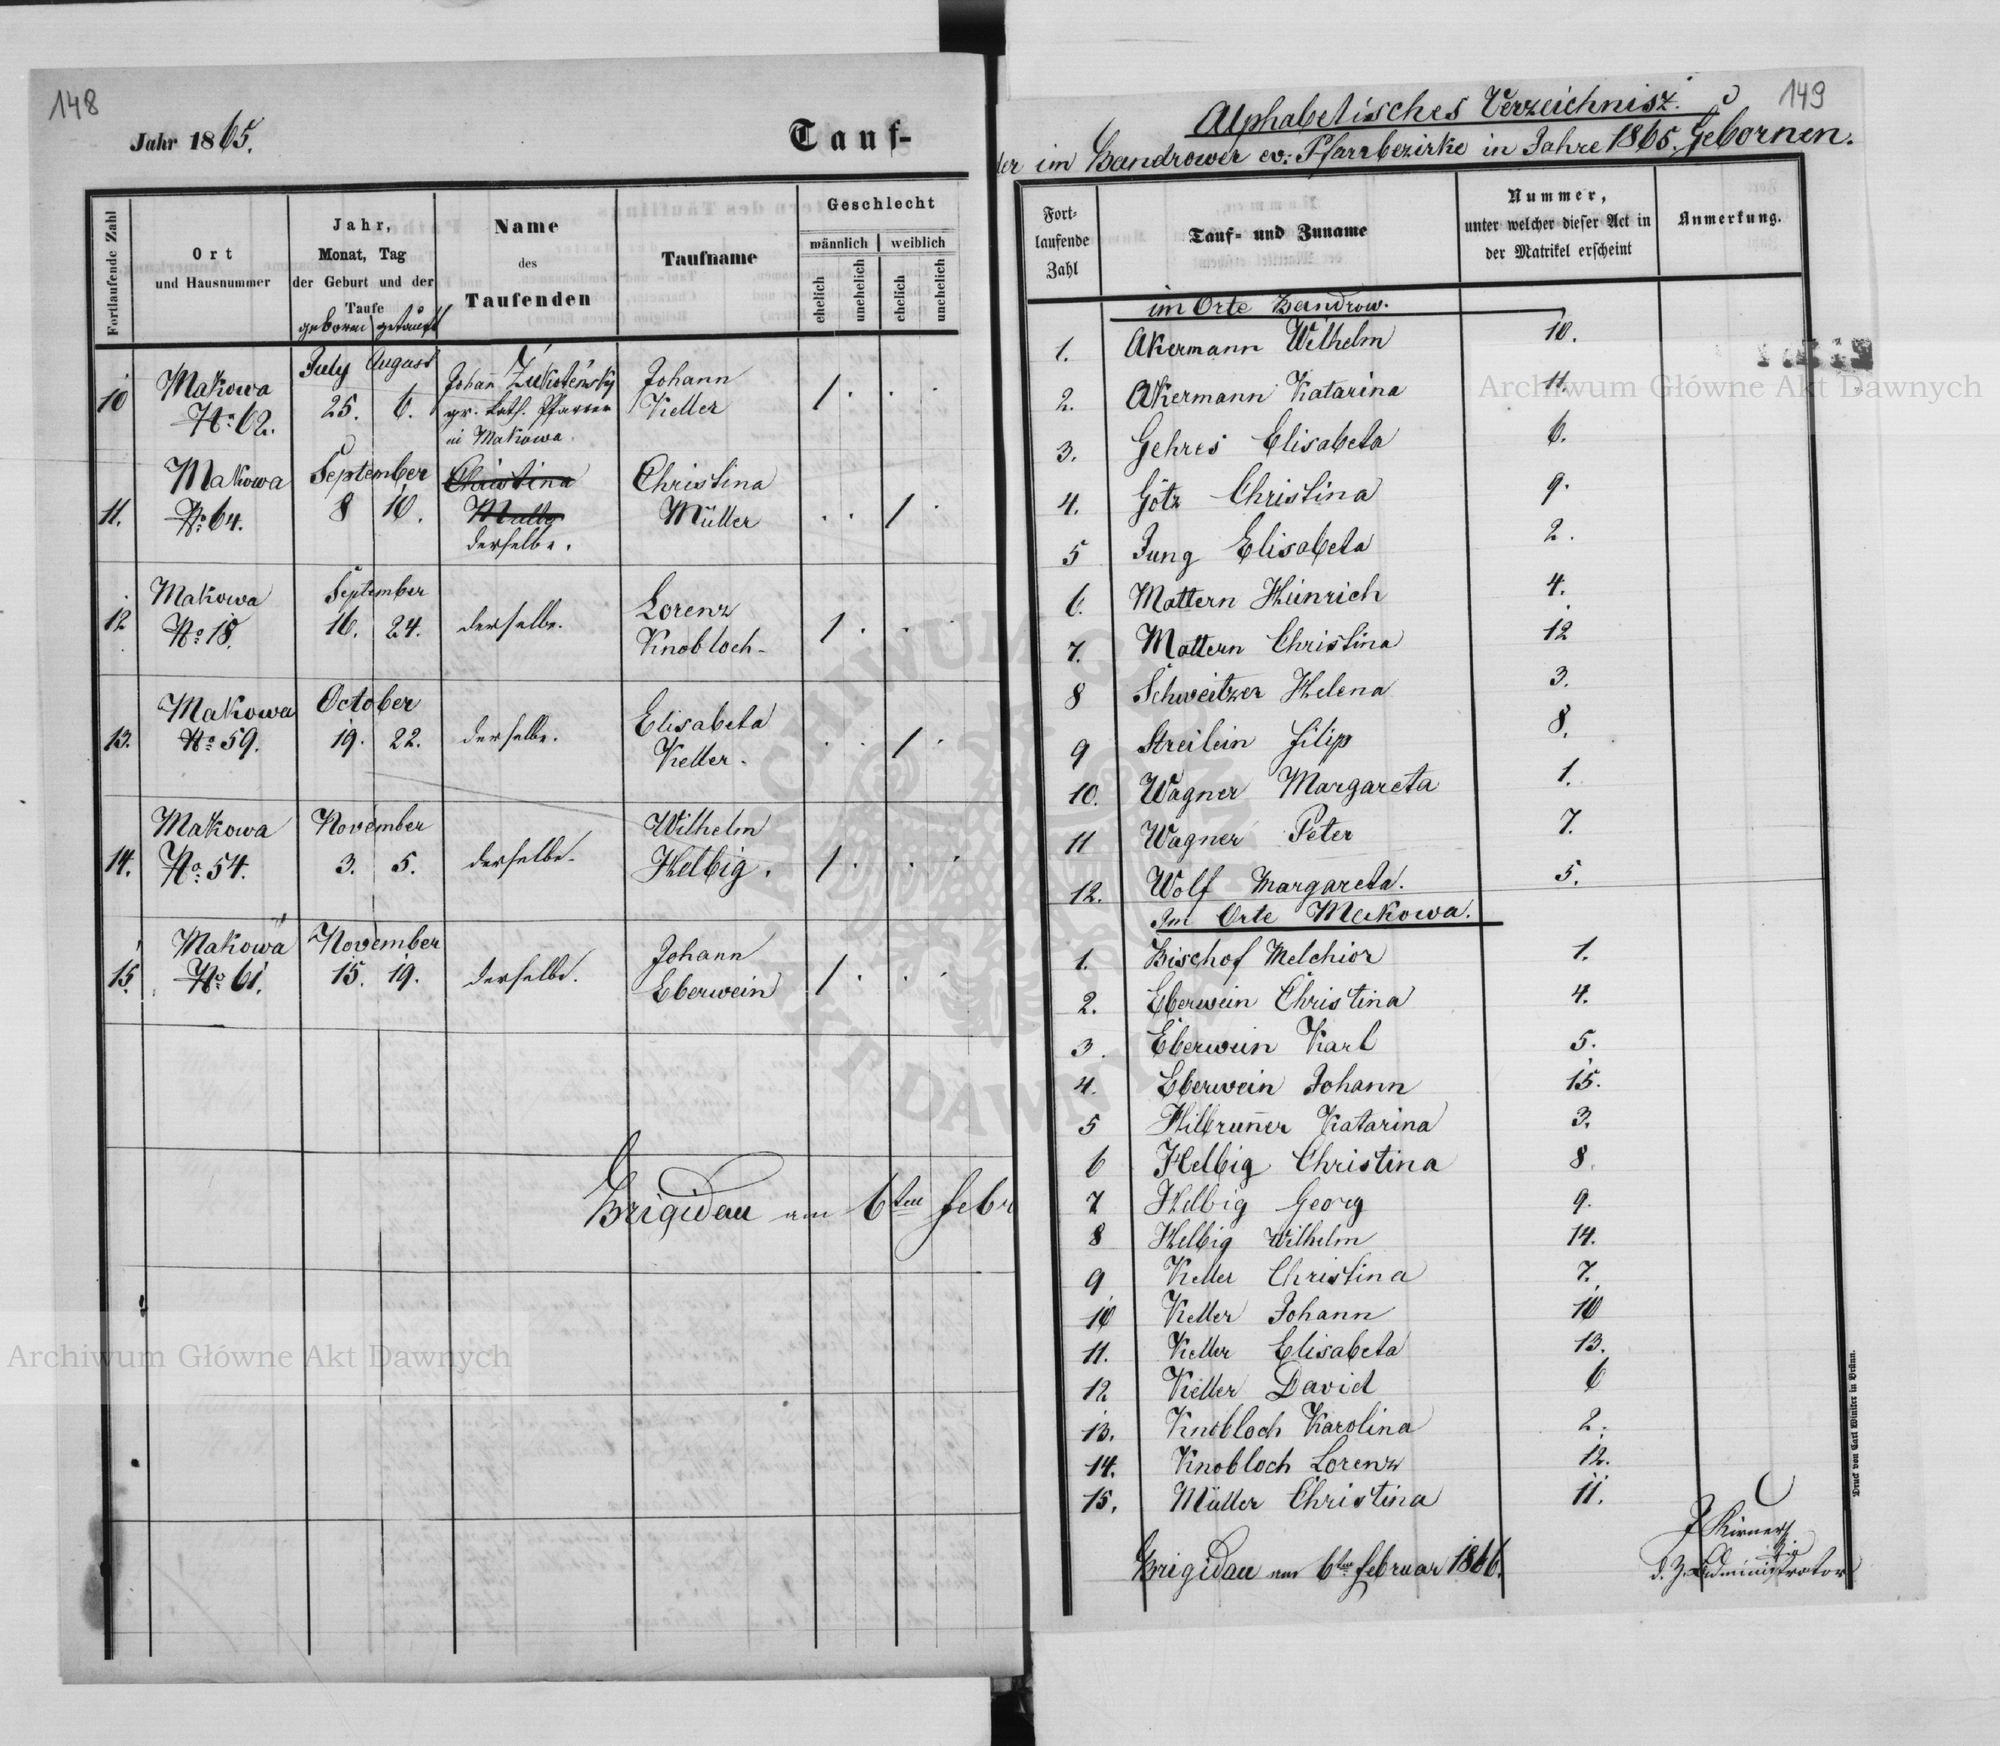 148
Jahr 1865.
Tauf-
Fortlaufende Zahl
Ort
und Hausnummer
Jahr,
Monat, Tag
der Geburt und der
Taufe
geboren getauft
Name
des
Taufenden
Taufname
Geschlecht
männlich weiblich
ehelich
unehelich
ehelich
unehelich
July August
10 Makowa Johann Johann 1 . . .
No 62. 25. 6. gr. kath. Pfarrer Keller
in Makowa.
Makowa September Christina Christina
11. No 64. 8 10. Müller . . 1 .
derselbe.
Makowa September Lorenz
12 No 18. 16. 24. derselbe. Knobloch- 1 . . .
Makowa October Elisabeta
13. No 59. 19. 22. derselbe. Keller. . . 1 .
Makowa November Wilhelm
14. No. 54. 3. 5. derselbe. Helbig. 1 . . .
Makowa November Johann
15. No 61. 15. 19. derselbe. Eberwein 1 . . .
Brigidau am 6ten Febr
149
Alphabetisches Verzeichnisz.
der im Bandrower ev: Pfarrbezirke in Jahre 1865. Gebornen.
Fort-
laufende
Zahl
Tauf- und Zuname
Nummer,
unter welcher dieser Act in
der Matrikel erscheint
Anmerkung.
im Orte Bandrow.
1. Akermann Wilhelm 10.
2. Akermann Katarina 11.
3. Gehres Elisabeta 6.
4. Götz Christina 9.
5 Jung Elisabeta 2.
6. Mattern Heinrich 4.
7. Mattern Christina 12
8 Schweitzer Helena 3.
9 Streilein Filip 8.
10. Wagner Margareta 1.
11 Wagner Peter 7.
12. Wolf Margareta. 5.
Im Orte Makowa.
1. Bischof Melchior 1.
2. Eberwein Christina 4.
3. Eberwein Karl 5.
4. Eberwein Johann 15.
5 Hilbrun̄er Katarina 3.
6 Helbig Christina 8.
7 Helbig Georg 9.
8 Helbig Wilhelm 14.
9 Keller Christina 7.
10 Keller Johann 10
11. Keller Elisabeta 13.
12 Keller David 6
13. Knobloch Karolina 2.
14. Knobloch Lorenz 12.
15. Müller Christina 11.
Brigidau am 6ten Februar 1866.
d. Z. Administrator
Druck von Carl Winiker in Brünn.
Archiwum Główne Akt Dawnych
Archiwum Główne Akt Dawnych